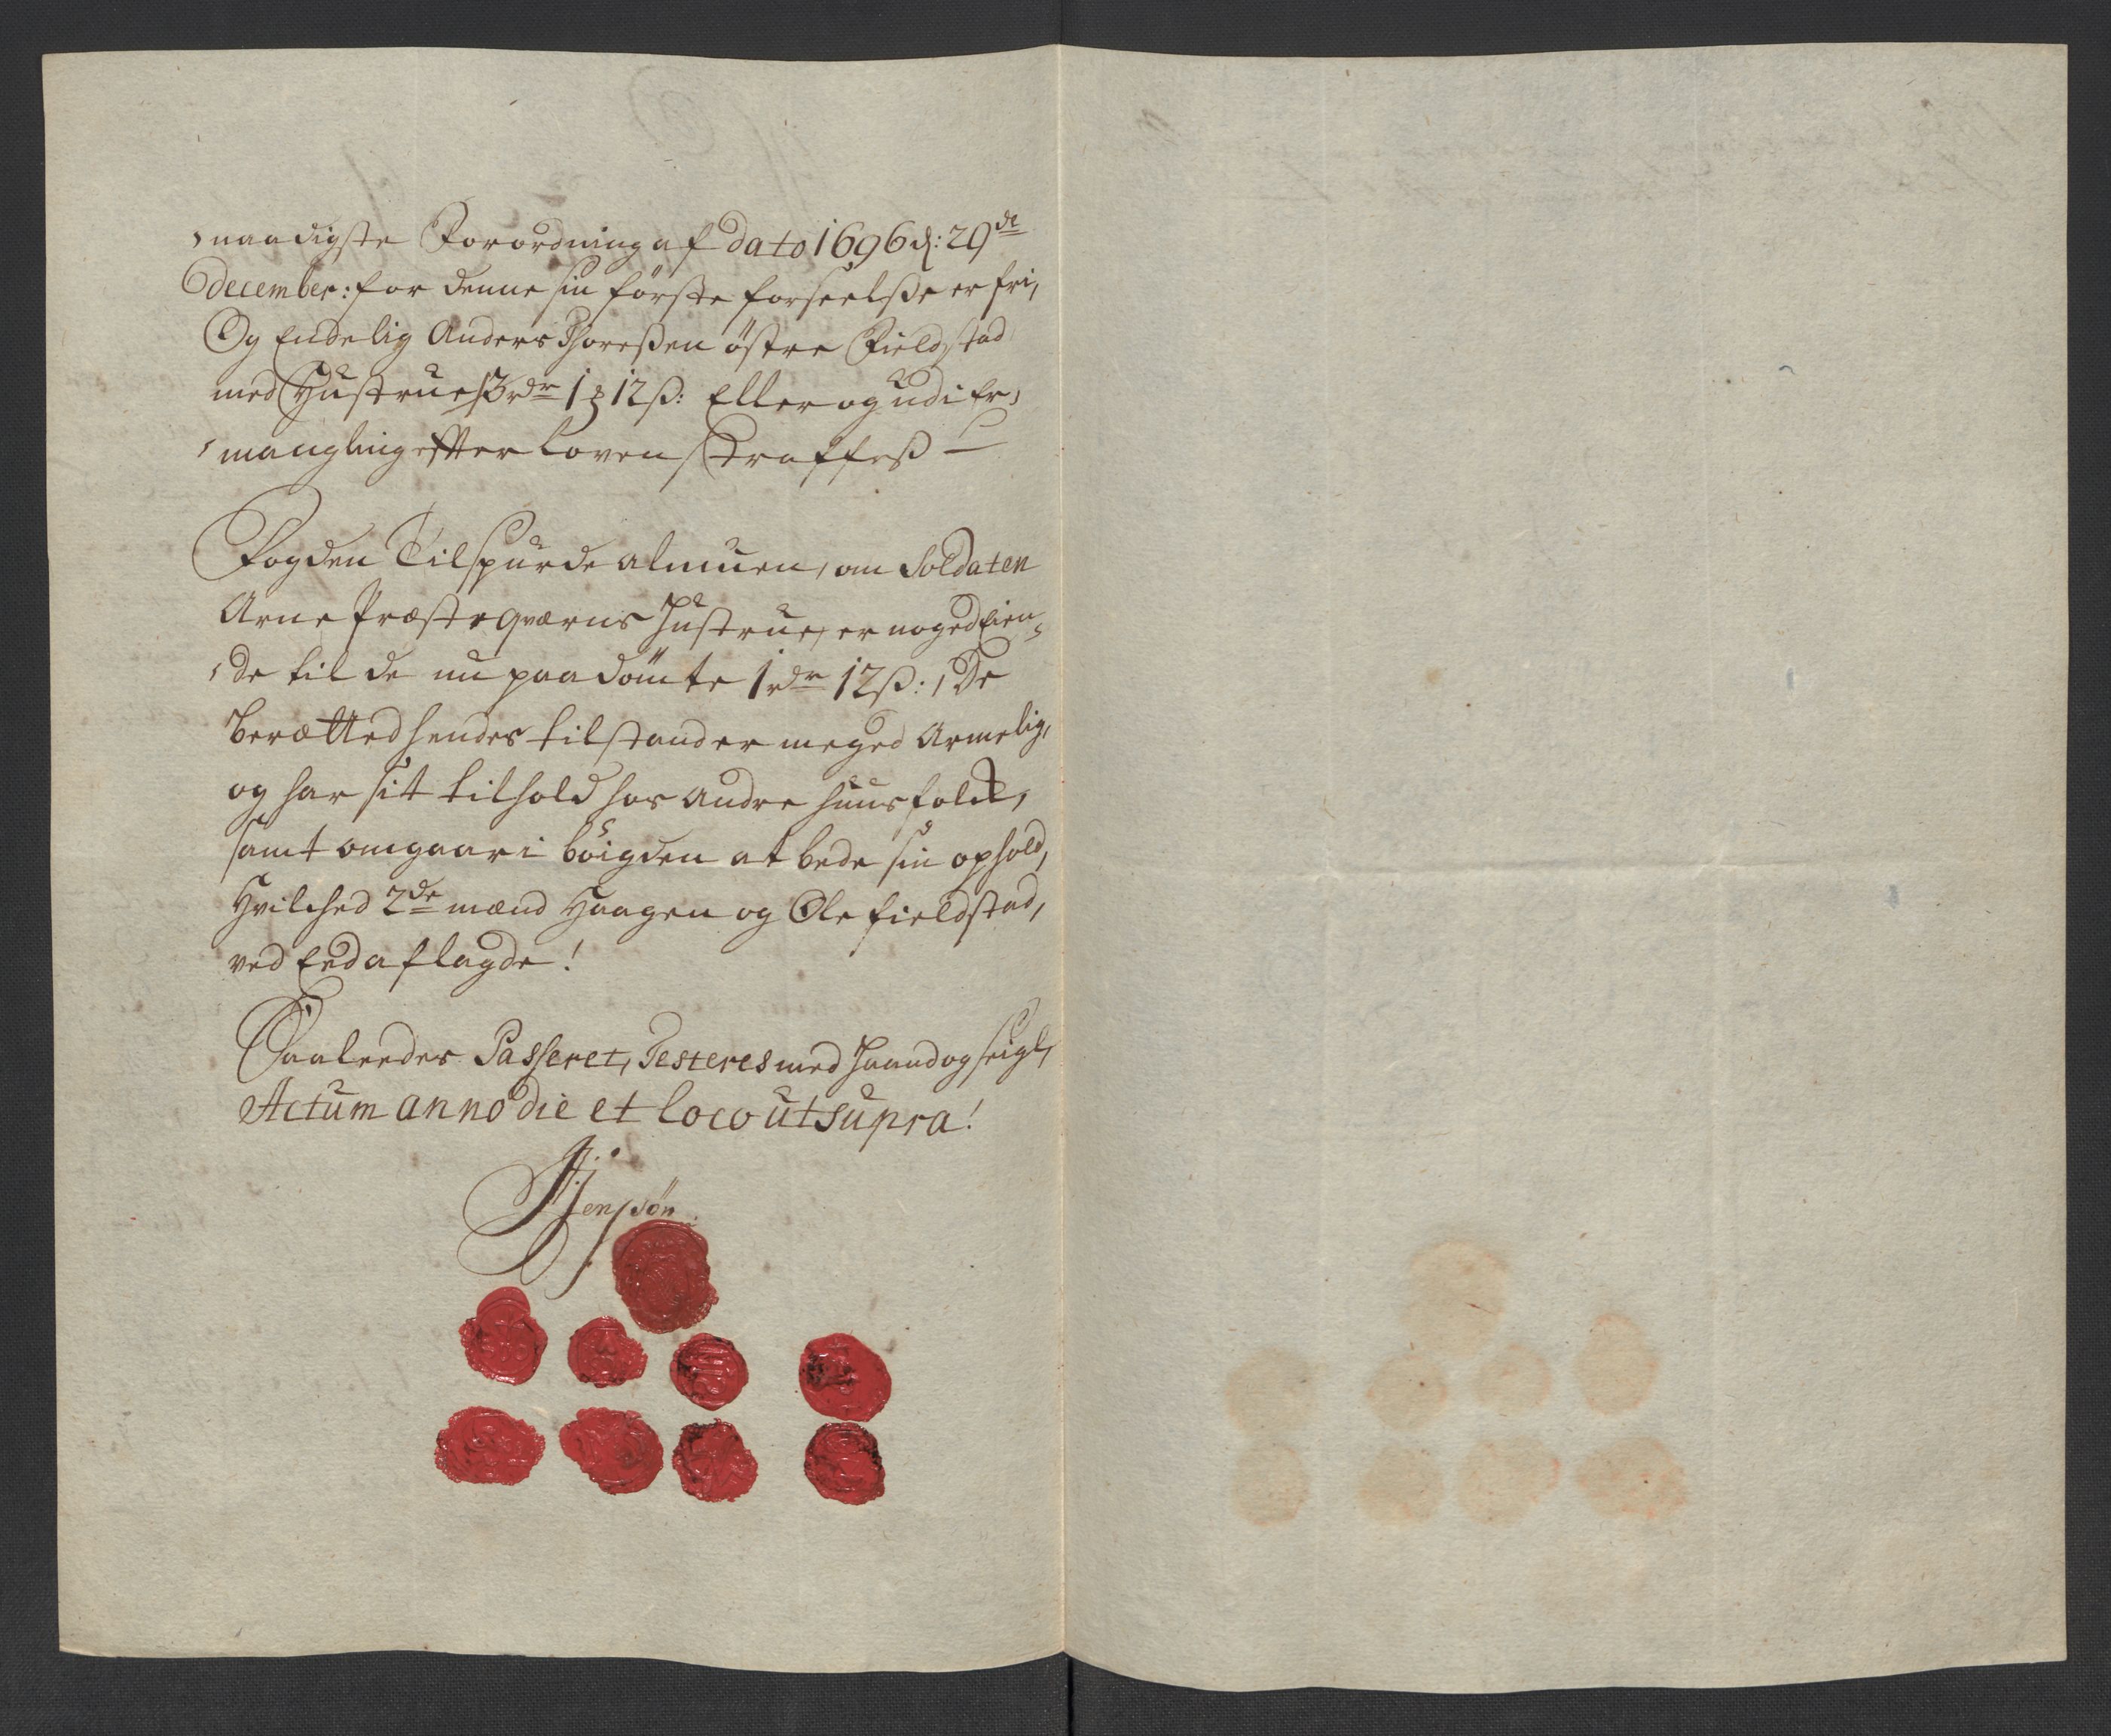 naadigste Forordning af dato 1696 d: 29de
December: for denne sin första forseelsse er fri,
Og Endelig Anders Thoressen östre Fieldstad
med Hustrue 3 rdr 1 ß 12 ß: Eller og udi Er,
mangling efter Loven straffess
Fogden Tilspurde almuen, om Soldaten
Arne Præsteqværns Hustrue, er noged Eien,
de til de nu paadömte 1 rdr 12 ß:, De
berætted hendes tilstand er meged Armelig,
og har sit tilhold hos andre huusfolck,
samt omgaar i böigden at bede sin ophold,
Hvilched 2de mænd Haagen og Ole fieldstad,
ved Eed aflagde!
Saaleedes Passeret, Testeres med Haand og seigl,
Actum anno die et loco ut supra!
Jensøn